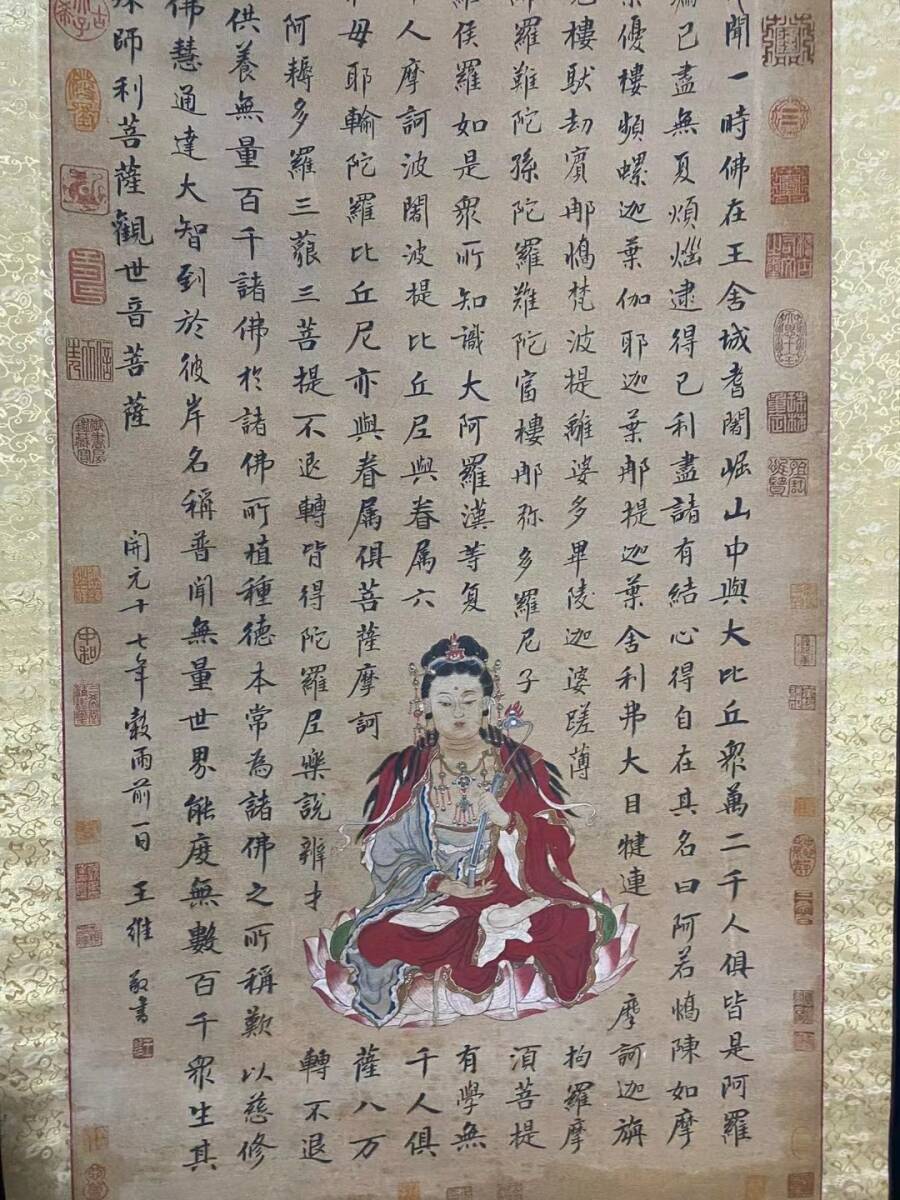 聞一時佛在王舍城耆闍崛山中與大比丘眾萬二千人俱皆是阿羅
已盡無夏煩惱逮得已利盡諸有結心得自在其名曰阿若憍陳如摩
葉優樓頻螺迦葉伽耶迦葉那提迦葉舍利弗大目犍連 摩訶迦旃
樓馱劫賓那憍梵波提離婆多畢陵迦婆蹉薄 拘羅摩
羅難陀孫陀羅難陀富樓那弥多羅尼子 須菩提
侯羅如是眾所知識大阿羅漢等复 有學無
人摩訶波闍波提比丘尼與眷属六 千人俱
母耶輸陀羅比丘尼亦與眷属俱菩薩摩訶 薩八万
阿耨多羅三藐三菩提不退轉皆得陀羅尼樂說辯才 轉不退
供養無量百千諸佛於諸佛所植種德本常為諸佛之所稱歎以慈修
佛慧通達大智到於彼岸名稱普聞無量世界能度無數百千眾生其
殊師利菩薩觀世音菩薩
開元十七年穀雨前一日 王維 敬書
中和